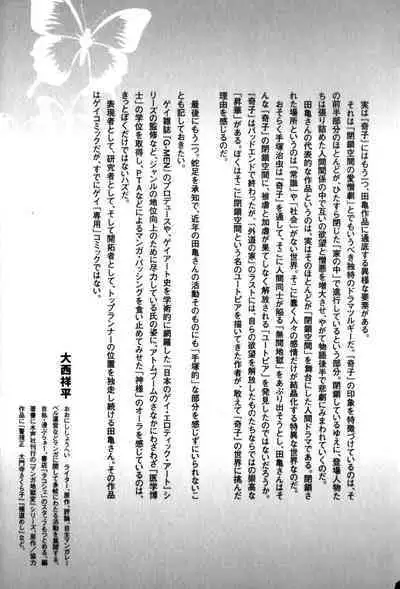 実は『奇子』にはもう一つ、田亀作品に通底する異様な要素がある。
それは「閉鎖空間の愛憎劇」とでもいうべき独特のドラマツルギーだ。『奇子』の印象を特徴づけているのは、そ
の前半部分のほとんどが、ひたすら閉じた「家の中」で進行しているという部分。閉鎖しているゆえに、登場人物た
ちの張り詰めた人間関係の中で互いの欲望と憎悪を増大させ、やがて物語後半で悲劇にみまわれていくのだ。
田亀さんの代表的な作品というのは、実はそのほとんどが「閉鎖空間」を舞台にした人間ドラマである。閉鎖さ
れた場所というのは「常識」や「社会」がない世界。そこに蠢く人々の感情だけが結晶化する特異な世界なのだ。
おそらく手塚治虫は『奇子』を通して、そこに人間同士が陥る「無間地獄」をあぶり出そうとし、田亀さんはそ
んな『奇子』の閉鎖空間に、被虐と加虐が果てしなく解放される「ユートピア」を発見したのではないだろうか。
『奇子』はバッドエンドで終わったが、『外道の家』のラストには、自らの欲望を解放したものたちならではの崇高な
「昇華」がある。ぼくはそこに閉鎖空間という名のユートピアを描いてきた作者が、敢えて『奇子』の世界に挑んだ
理由を感じるのだ。
最後にもう一つ、蛇足を承知で、近年の田亀さんの活動そのものにも「手塚的」な部分を感じずにいられないこ
とも記しておきたい。
ゲイ雑誌『G-men』のプロデュースや、ゲイアート史を学術的に網羅した『日本のゲイ・エロティック・アート』シ
リーズの監修など、ジャンルの地位向上のために尽力している氏の姿に、アトムブームのさなかにわざわざ「医学博
士」の学位を取得し、PTAなどによるマンガ・バッシングを食い止めてみせた「神様」のオーラを感じているのは、
きっとぼくだけではないハズだ。
表現者として、研究者として、そして開拓者として、トップランナーの位置を独走し続ける田亀さん。その作品
はゲイコミックだが、すでにゲイ「専用」コミックではない。
大西祥平
おおにししょうへい　ライター、原作、評論、自主マンガレー
ベル運営などマンガに関して多岐にわたる活動を展開する。
著書に水声社刊行の「マンガ地獄変」シリーズ、原作/協力